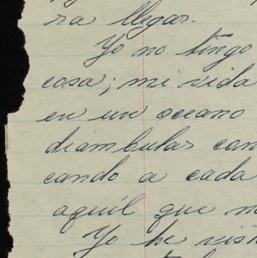 ra llegar.
Yo no tengo
cosa; mi vida
en un oceano
diambular con
cando a cada
aquél que m
Yo he vist